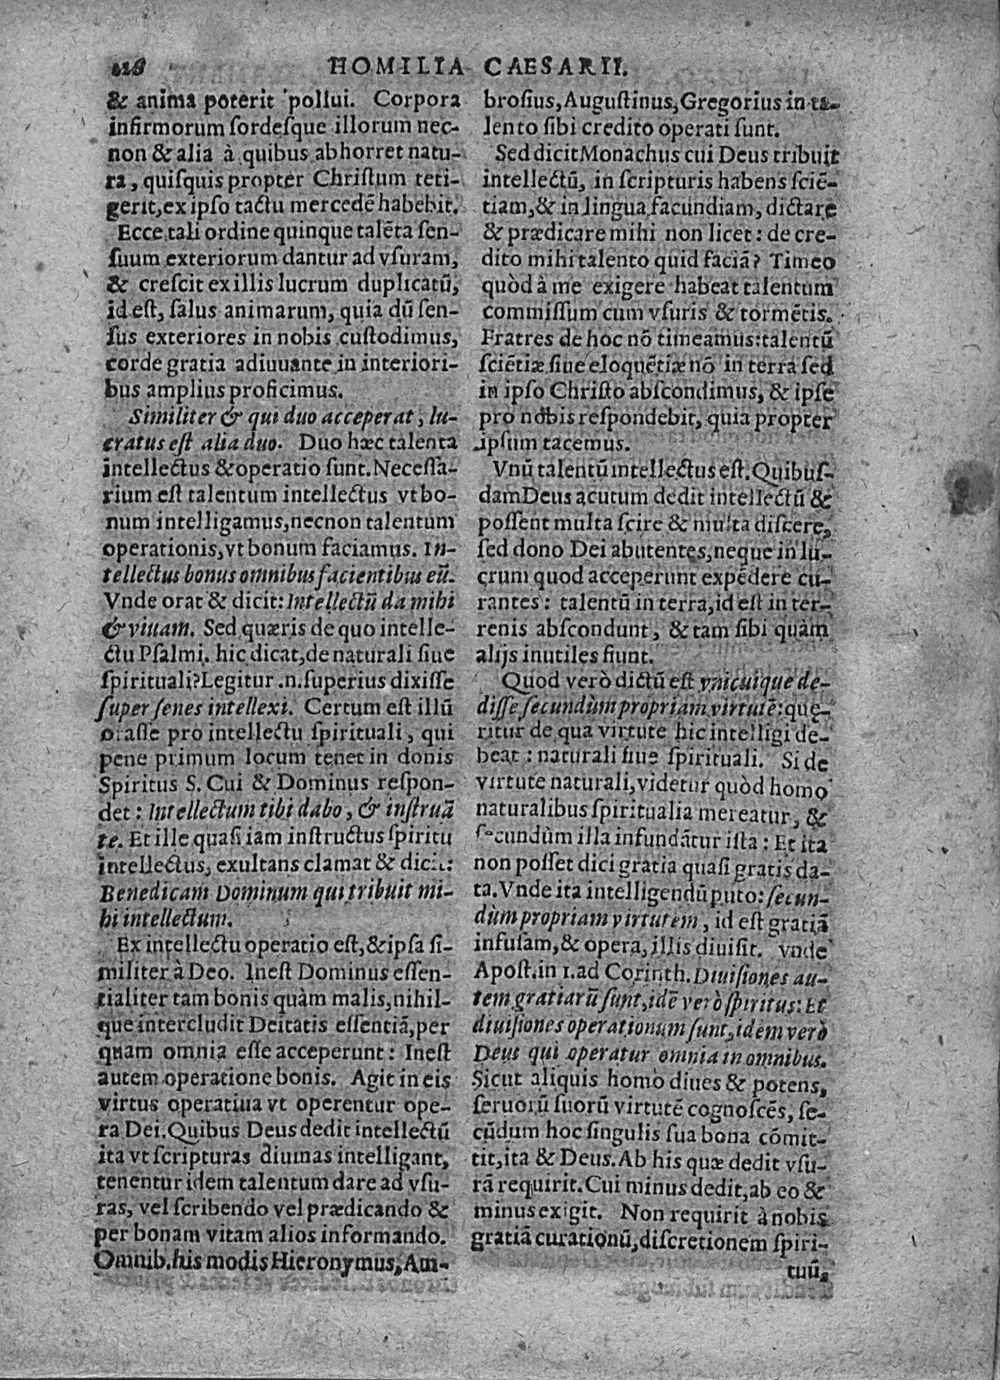 HOMILIA CAESARII.
& anima poterit pollui. Corpora
infirmorum sordesque illorum nec-
non & alia à quibus abhorret natu-
ra, quisquis propter Christum teti-
gerit, ex ipso tactu mercedē habebit.
Ecce tali ordine quinque talēta sen-
suum exteriorum dantur ad vsuram,
& crescit ex illis lucrum duplicatū,
id est, salus animarum, quia dū sen-
sus exteriores in nobis custodimus,
corde gratia adiuuante in interiori-
bus amplius proficimus.
Similiter & qui duo acceperat, lu-
cratus est alia duo. Duo hæc talenta
intellectus & operatio sunt. Necessa-
rium est talentum intellectus vt bo-
num intelligamus, necnon talentum
operationis, vt bonum faciamus. In-
tellectus bonus omnibus facientibus eū.
Vnde orat & dicit: Intellectū da mihi
& viuam. Sed quæris de quo intelle-
ctu Psalmi. hic dicat, de naturali siue
spirituali? Legitur .n. superius dixisse
super senes intellexi. Certum est illū
orasse pro intellectu spirituali, qui
pene primum locum tenet in donis
Spiritus S. Cui & Dominus respon-
det: Intellectum tibi dabo, & instruā
te. Et ille quasi iam instructus spiritu
intellectus, exultans clamat & dicit:
Benedicam Dominum qui tribuit mi-
hi intellectum.
Ex intellectu operatio est, & ipsa si-
militer à Deo. Inest Dominus essen-
tialiter tam bonis quàm malis, nihil-
que intercludit Deitatis essentiā, per
quam omnia esse acceperunt: Inest
autem operatione bonis. Agit in eis
virtus operatiua vt operentur ope-
ra Dei. Quibus Deus dedit intellectū
ita vt scripturas diuinas intelligant,
tenentur idem talentum dare ad vsu-
ras, vel scribendo vel prædicando &
per bonam vitam alios informando.
Omnib. his modis Hieronymus, Am-
brosius, Augustinus, Gregorius in ta-
lento sibi credito operati sunt.
Sed dicit Monachus cui Deus tribuit
intellectū, in scripturis habens sciē-
tiam, & in lingua facundiam, dictare
& prædicare mihi non licet: de cre-
dito mihi talento quid faciā? Timeo
quòd à me exigere habeat talentum
commissum cum vsuris & tormētis.
Fratres de hoc nō timeamus: talentū
sciētiæ siue eloquētiæ nō in terra sed
in ipso Christo abscondimus, & ipse
pro nobis respondebit, quia propter
ipsum tacemus.
Vnū talentū intellectus est. Quibus-
dam Deus acutum dedit intellectū &
possent multa scire & multa discere,
sed dono Dei abutentes, neque in lu-
crum quod acceperunt expēdere cu-
rantes: talentū in terra, id est in ter-
renis abscondunt, & tam sibi quàm
alijs inutiles fiunt.
Quod verò dictū est vnicuique de-
disse secundùm propriam virtutē: quę-
ritur de qua virtute hic intelligi de-
beat: naturali siue spirituali. Si de
virtute naturali, videtur quòd homo
naturalibus spiritualia mereatur, &
secundùm illa infundātur ista: Et ita
non posset dici gratia quasi gratis da-
ta. Vnde ita intelligendū puto: secun-
dùm propriam virtutem, id est gratiā
infusam, & opera, illis diuisit. vnde
Apost. in 1. ad Corinth. Diuisiones au-
tem gratiarū sunt, idē verò spiritus: Et
diuisiones operationum sunt, idem verò
Deus qui operatur omnia in omnibus.
Sicut aliquis homo diues & potens,
seruorū suorū virtutē cognoscēs, se-
cūdum hoc singulis sua bona cōmit-
tit, ita & Deus. Ab his quæ dedit vsu-
rā requirit. Cui minus dedit, ab eo &
minus exigit. Non requirit à nobis
gratiā curationū, discretionem spiri-
tuū,